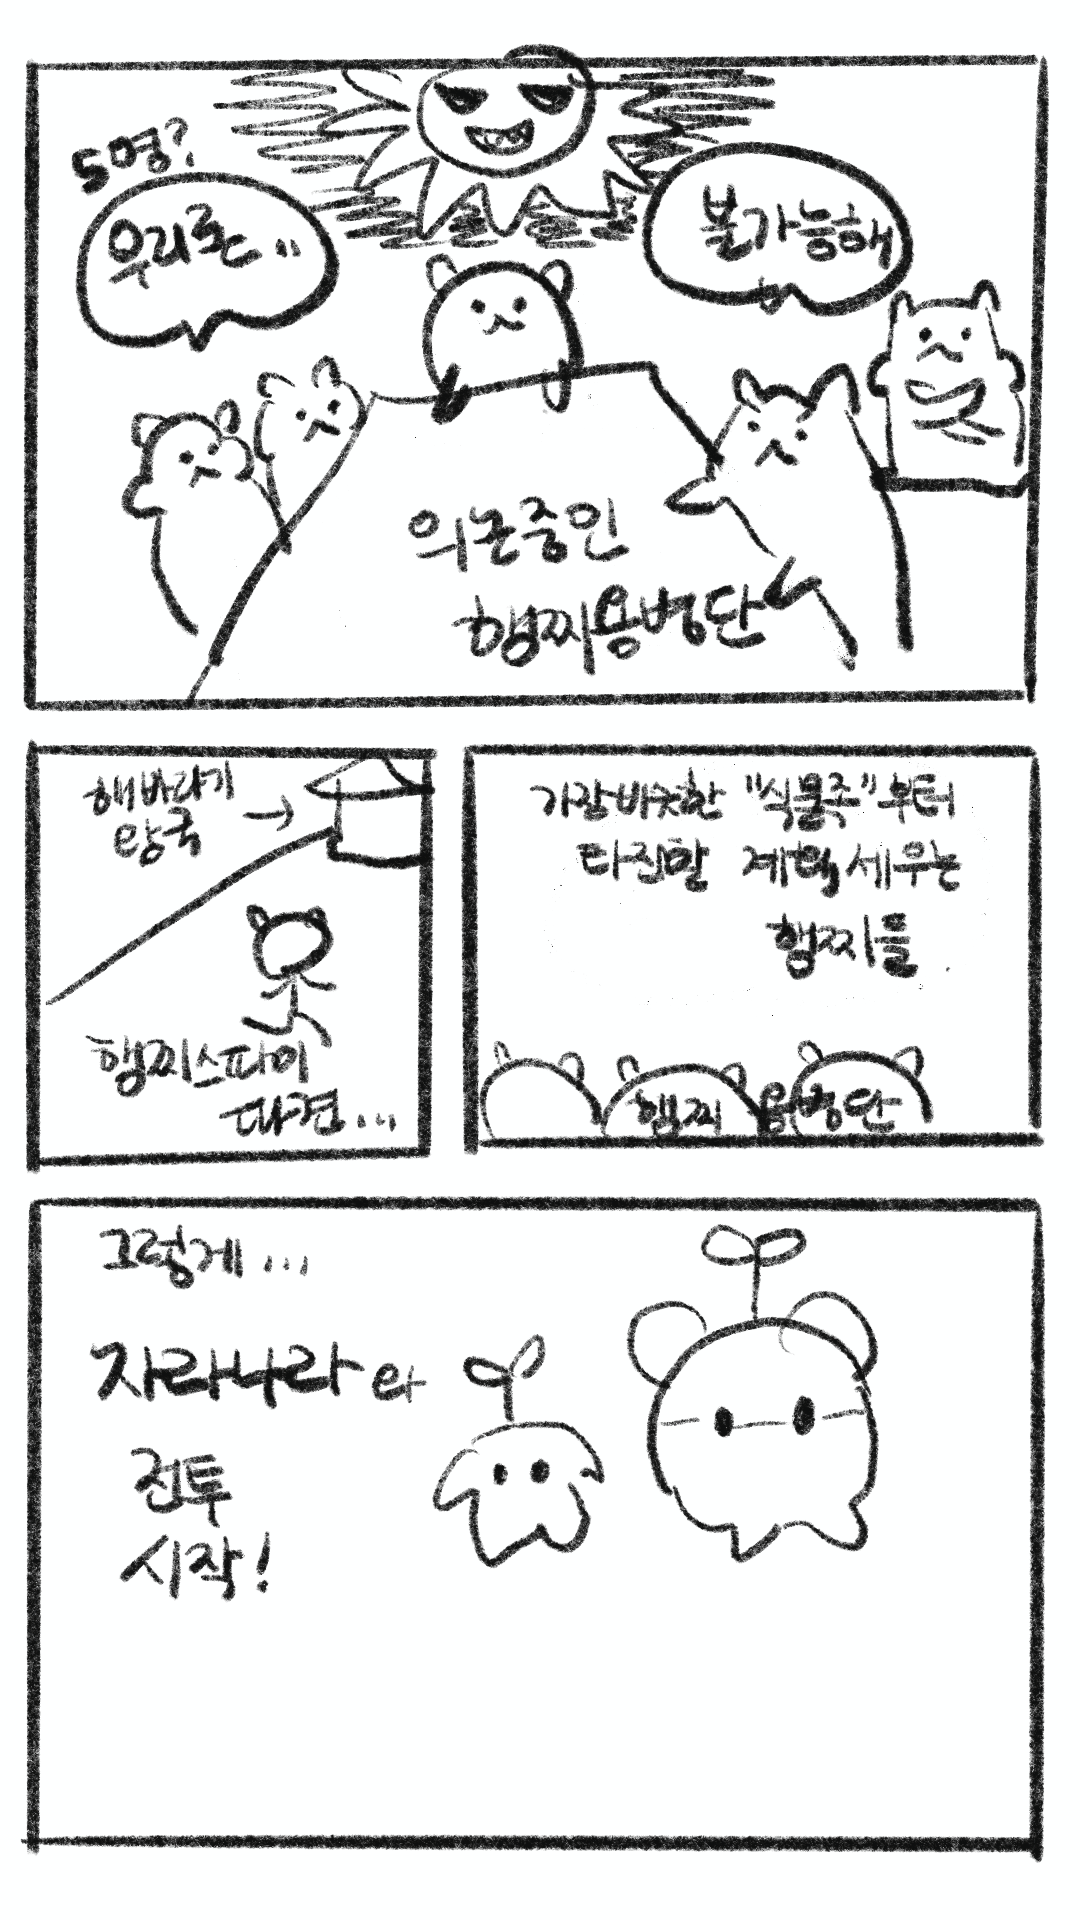 5명?
우리론..
불가능해
의논중인
햄찌용병단
해바라기
왕국
햄찌스파이
파견...
가장비슷한 "식물족"부터
타진할 계획세우는
햄찌들
햄찌 용병단
그렇게...
자라나라와
전투
시작!